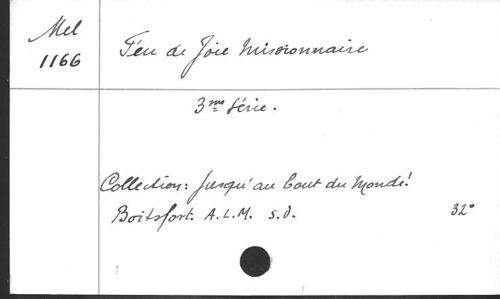 Mel
1166
Feu de Joie Missionnaire
3me série.
Collection: Jusqu'au bout du Monde!
Boitsfort. A.L.M. s.d. 32°